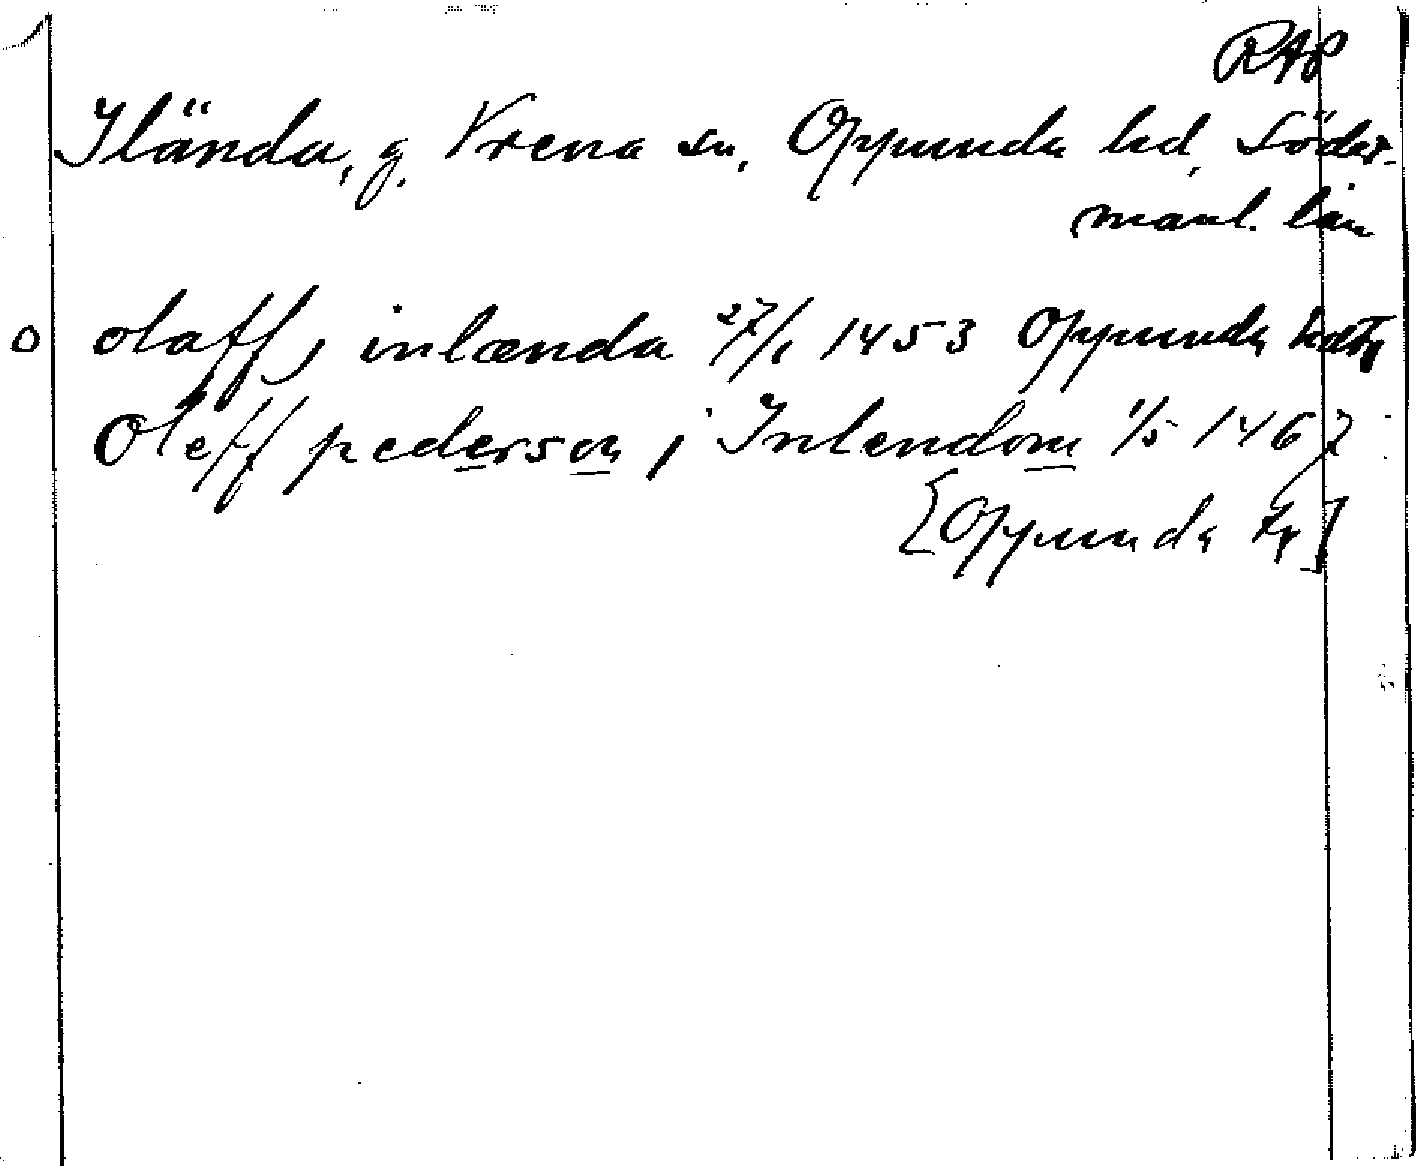 RAP
Ilända, g. Vrena sn, Oppunda hd, Söder-
manl. län
o olaff j inlænda 27/1 1453 Oppunda
Oleff pederson j Inlendom 1/5 1467
[Oppunda hr]